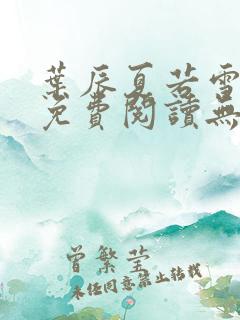 葉辰夏若雪
免費閱讀無
曾繁瑩
未經同意禁止轉載